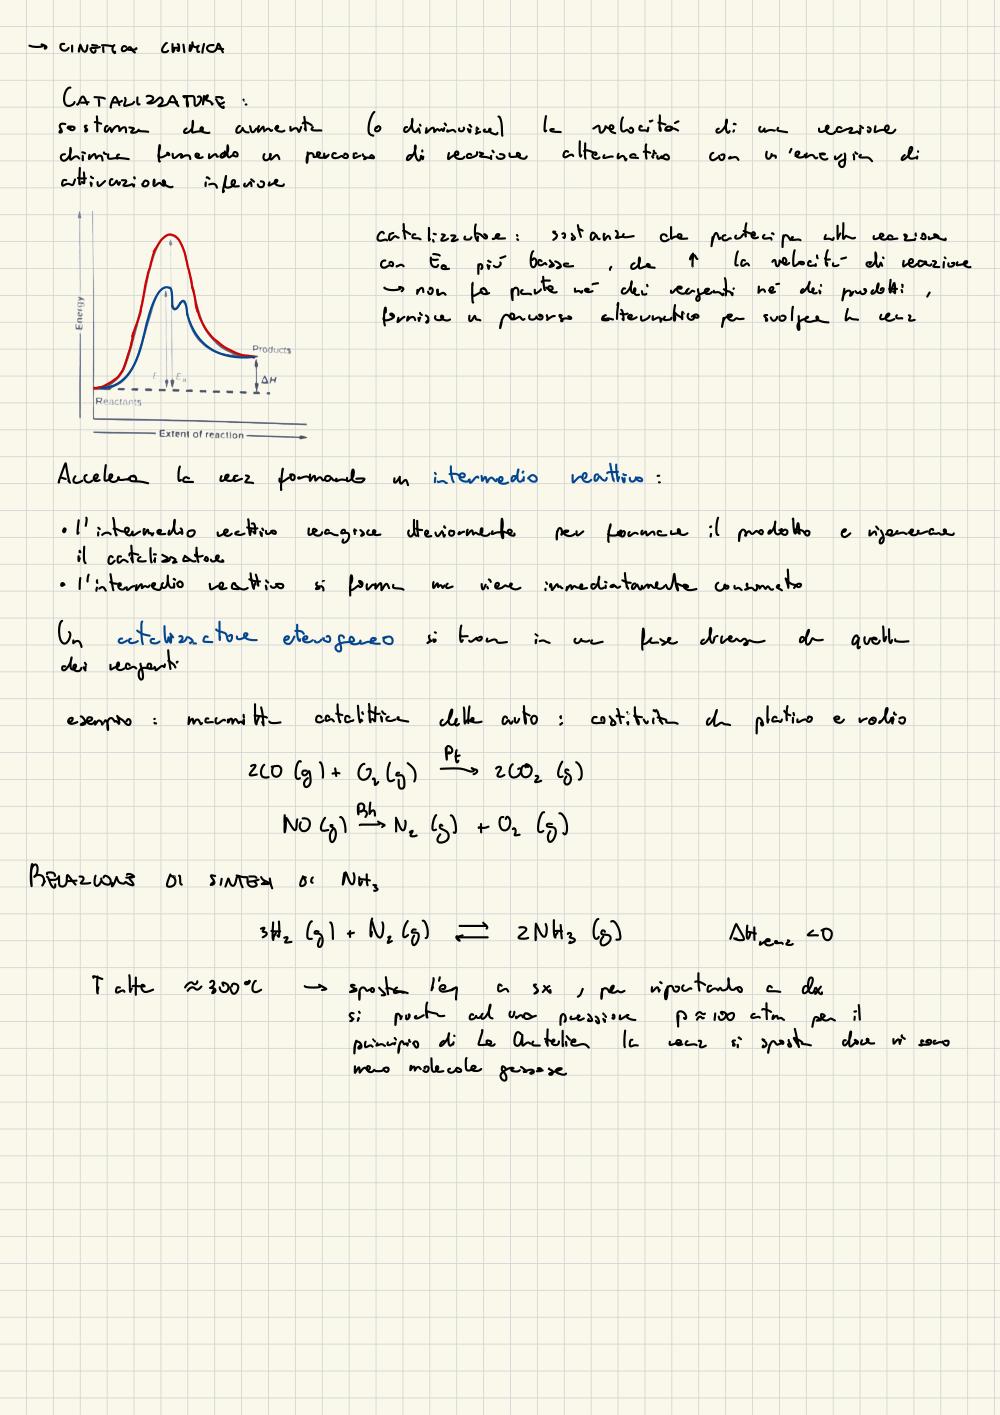 → CINETICA CHIMICA
CATALIZZATORE :
sostanza che aumenta (o diminuisce) la velocità di una reazione
chimica fornendo un percorso di reazione alternativo con un'energia di
attivazione inferiore
catalizzatore : sostanza che partecipa alla reazione
con Ea più bassa , che ↑ la velocità di reazione
→ non fa parte né dei reagenti né dei prodotti ,
fornisce un percorso alternativo per svolgere la reaz
Energy
Products
Ea
ΔH
Reactants
Extent of reaction
Accelera la reaz formando un intermedio reattivo :
• l'intermedio reattivo reagisce ulteriormente per formare il prodotto e rigenerare
il catalizzatore
• l'intermedio reattivo si forma ma viene immediatamente consumato
Un catalizzatore eterogeneo si trova in una fase diversa da quella
dei reagenti
esempio : marmitta catalittica delle auto : costituita da platino e rodio
2CO (g) + O₂ (g) Pt→ 2CO₂ (g)
NO (g) Rh→ N₂ (g) + O₂ (g)
REAZIONE DI SINTESI DI NH₃
3H₂ (g) + N₂ (g) ⇌ 2NH₃ (g) ΔH reaz <0
T alte ≈ 300°C → sposta l'eq a sx , per riportarlo a dx
si porta ad una pressione p ≈ 100 atm per il
principio di Le Chatelier la reaz si sposta dove vi sono
meno molecole gassose